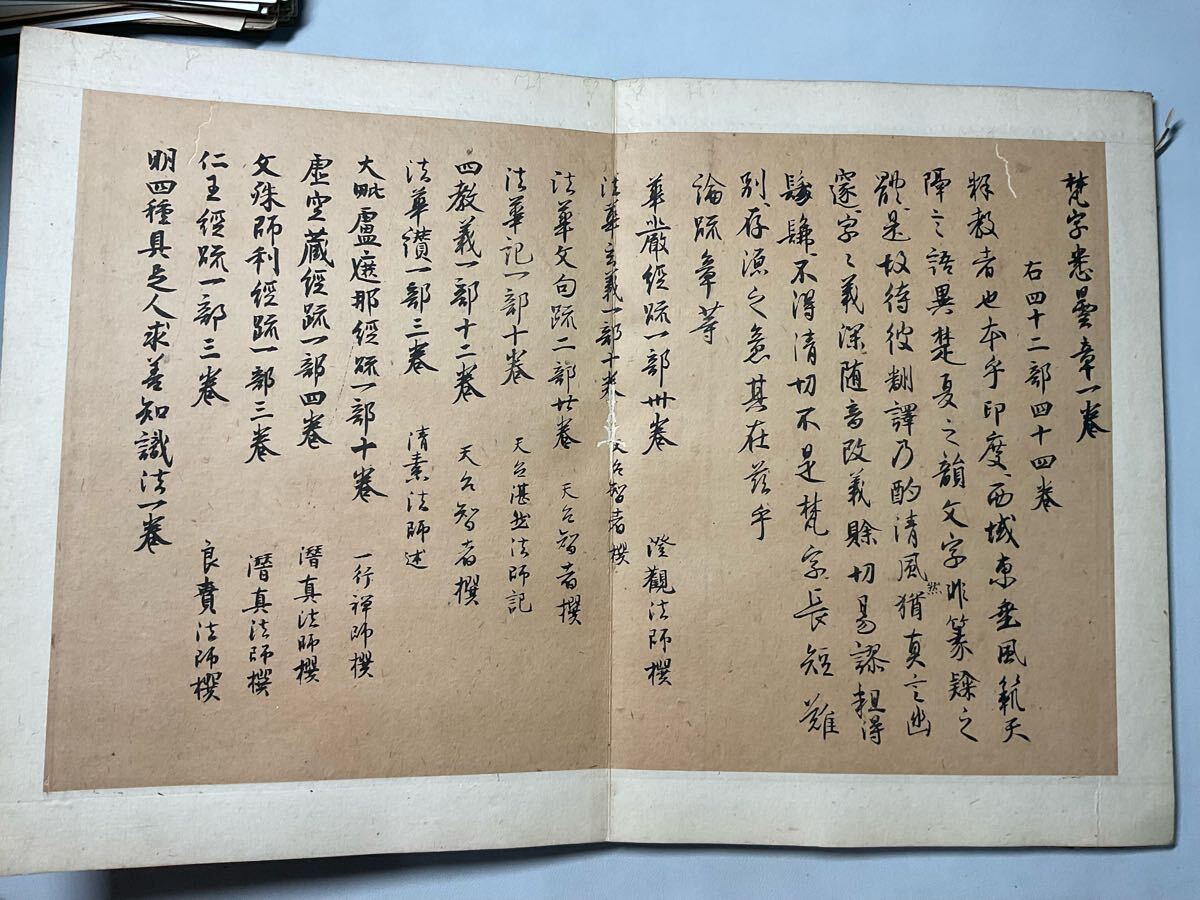 梵字悉曇章一卷
右四十二部四十四卷
釋教者也本乎印度西域東垂風範天
隔言語異楚夏之韻文字非篆隸之
體是故待彼翻譯乃酌清風然猶真言幽
邃字〻義深随音改義賒切易謬粗得
髣髴不得清切不是梵字長短難
別存源之意其在茲乎
論疏章等
華嚴經疏一部卅卷 澄觀法師撰
法華玄義一部十卷 天台智者撰
法華文句疏二部廿卷 天台智者撰
法華記一部十卷 天台湛然法師記
四教義一部十二卷 天台智者撰
法華讃一部三卷 清素法師述
大毗盧遮那經疏一部十卷 一行禅師撰
虚空藏經疏一部四卷 潛真法師撰
文殊師利經疏一部三卷 潛真法師撰
仁王經疏一部三卷 良賁法師撰
明四種具足人求善知識法一卷